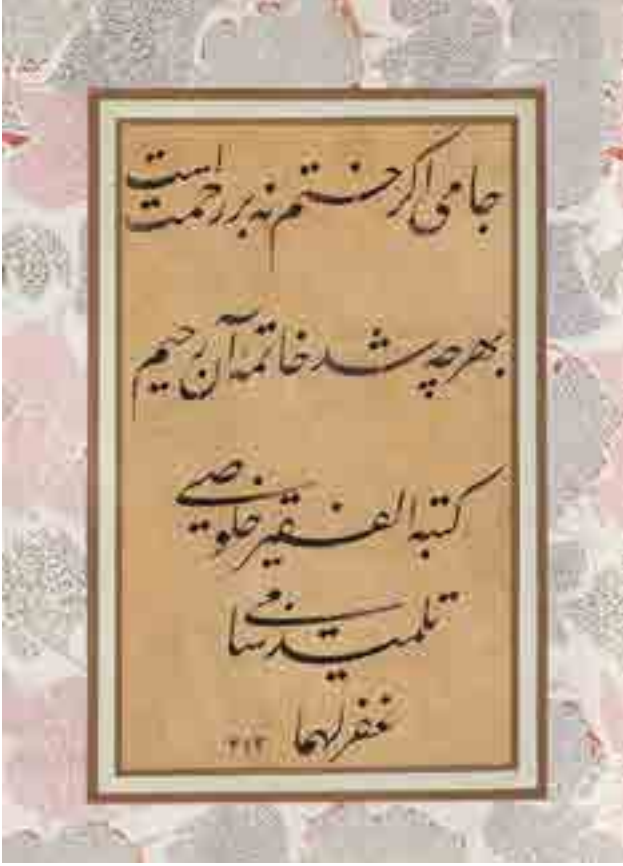 جامی اگر ختم نه بر رحمت است
بهر چه شد خاتمه آن رحیم
کتبه الفقیر خلوصی
تلمیذ سامی
غفر لهما ٣١٣